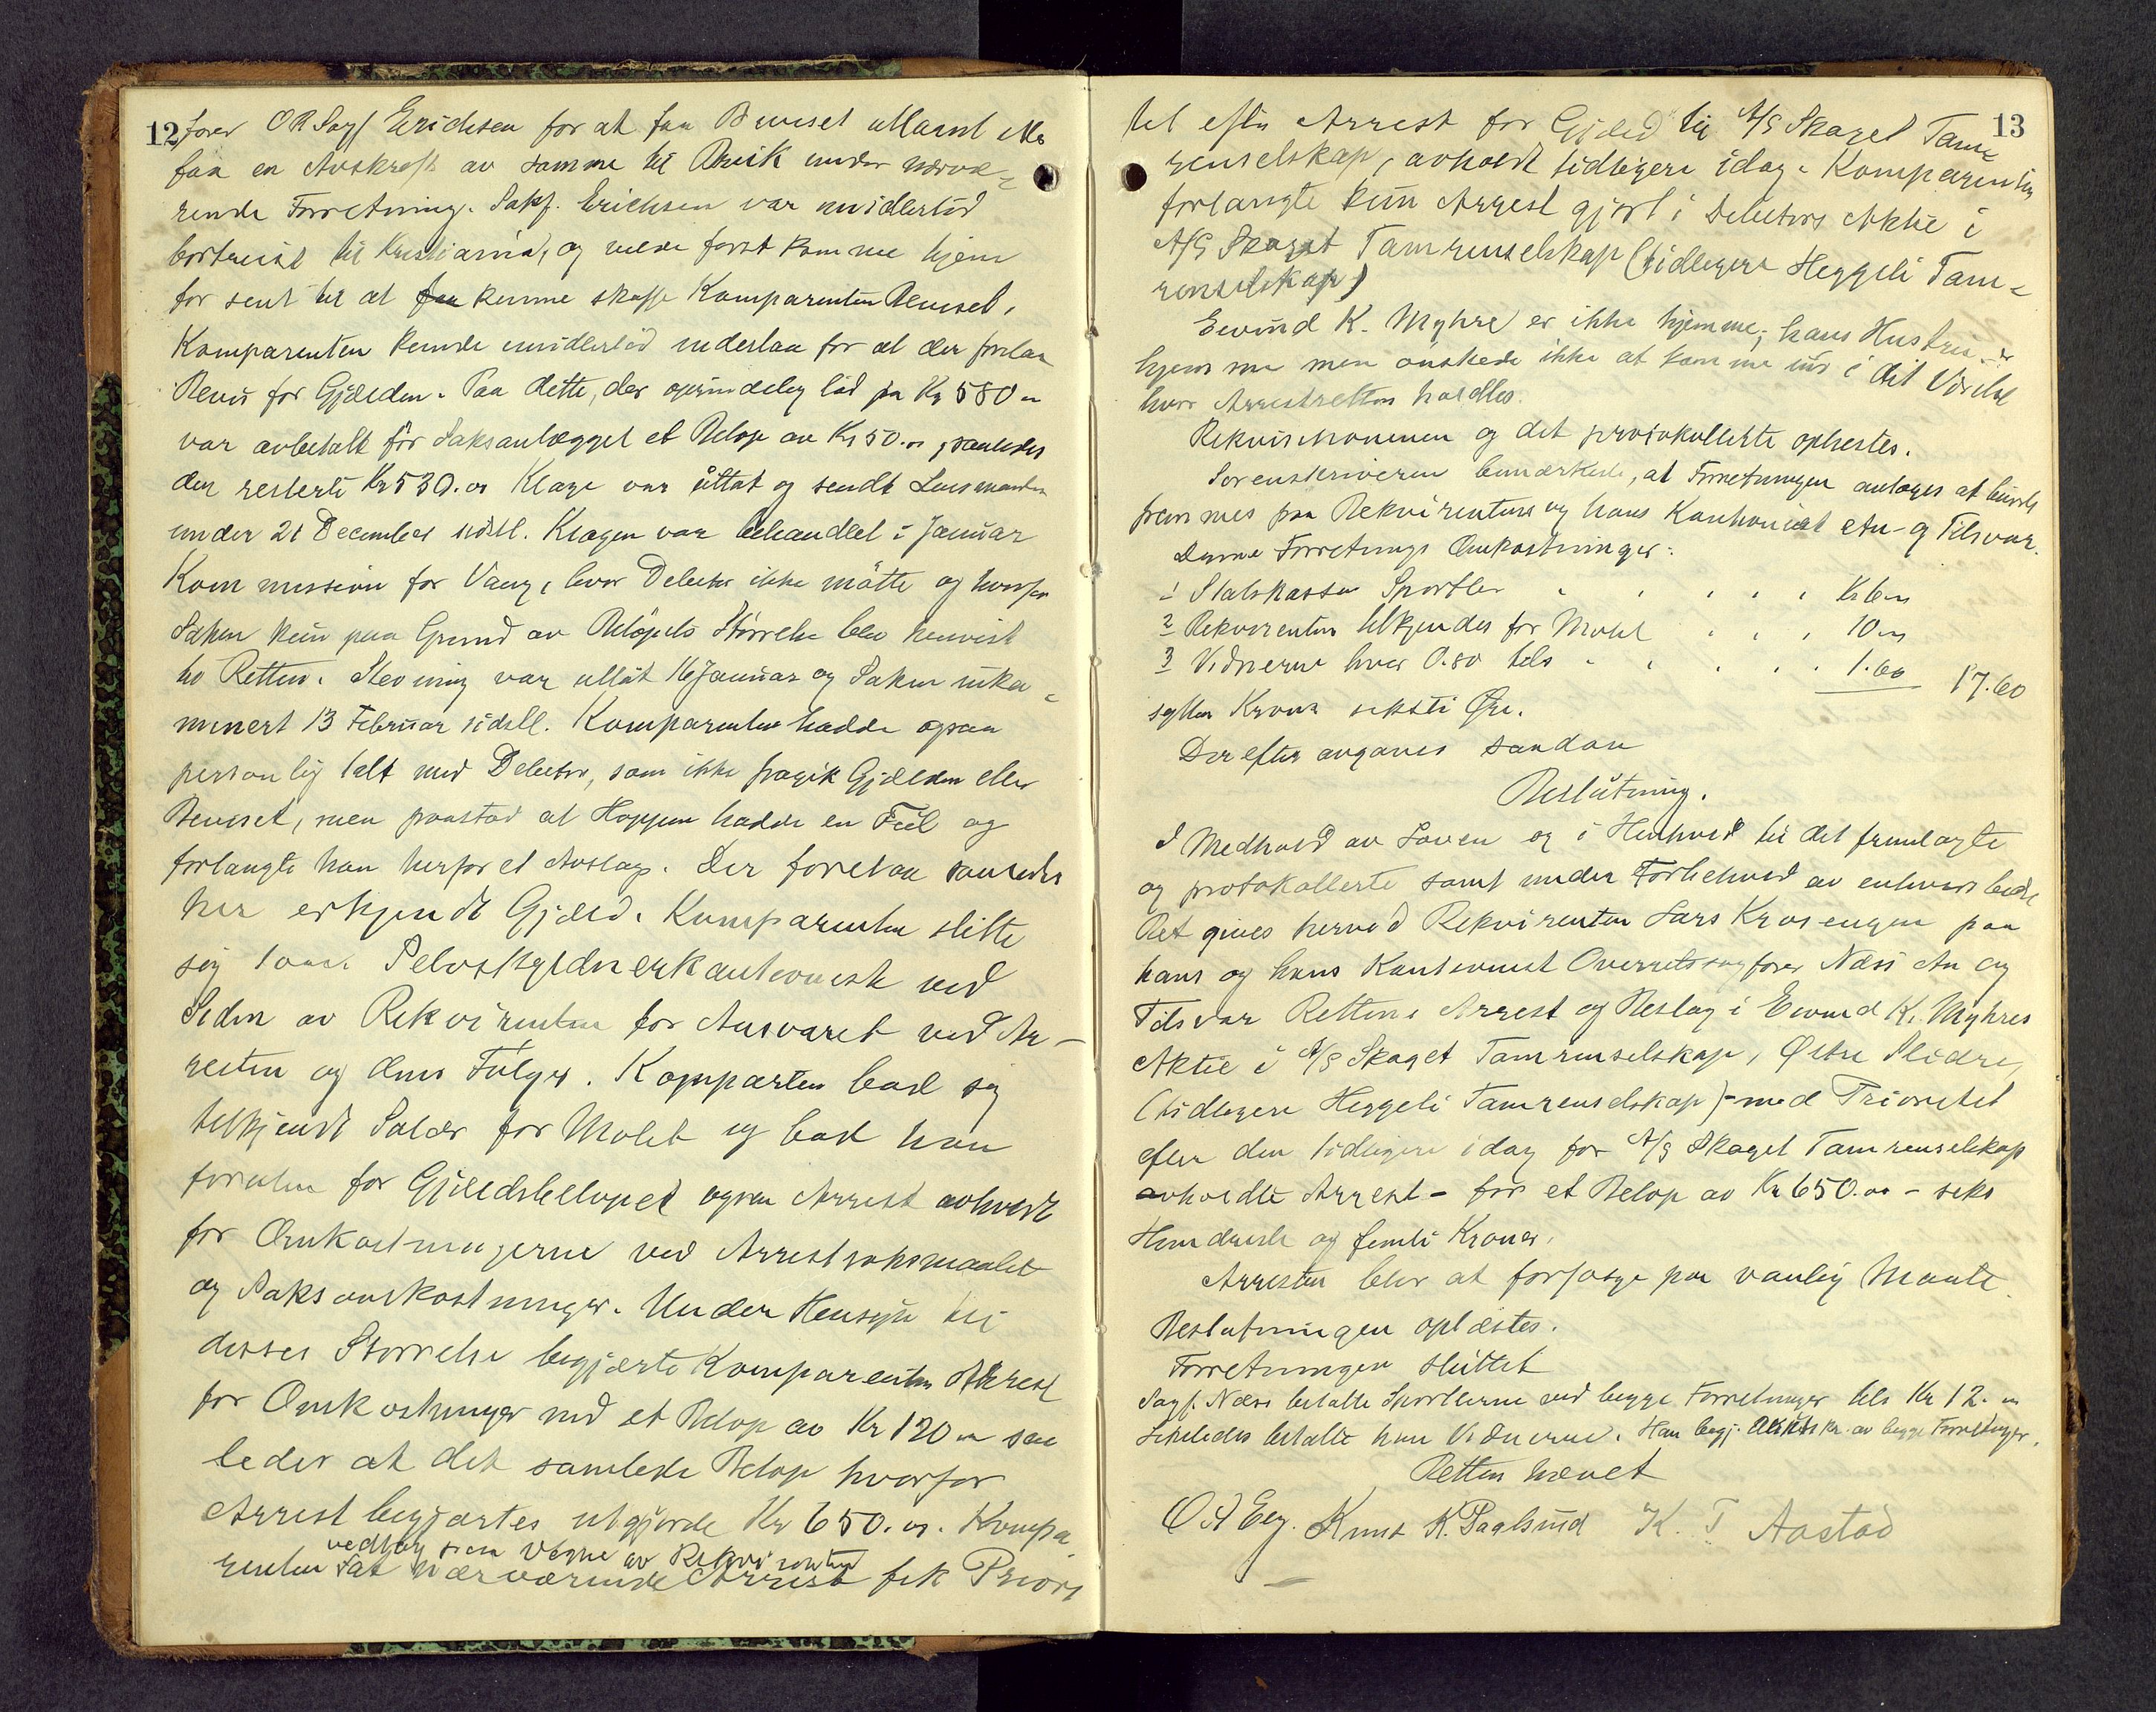 12
fører O R Sagf Erichsen for at faa Beviset utlaant eller
faa en Avskrift av samme til Bruk under nærvæ-
rende Forretning. Sakf. Erichsen var imidlertid
bortreist til Kristiania, og vilde først komme hjem
for sent til at faa kunne skaffe Komparenten Beviset.
Komparenten kunde imidlertid indestaa for at der forelaa
Bevis for Gjælden. Paa dette, der oprindelig lød pa Kr 580 00
var avbetalt før Saksanlægget et Beløp av Kr 50.00, saaledes
der resterte Kr 530.00 Klage var uttat og sendt Lensmanden
under 21 December sidstl. Klagen var behandlet i Januar
Kommission for Vang, hvor Debitor ikke møtte og hvorfra
Saken kun paa Grund av Beløpets Størrelse blev henvist
til Retten. Stevning var uttat 16 Januar og Saken inka-
minert 13 Februar sidstl. Komparenten hadde ogsaa
personlig talt med Debitor, som ikke fragik Gjælden eller
Beviset, men paastod at Hoppen hadde en Feil og
forlangte han herfor et Avslag. Der forelaa saaledes
her erkjendt Gjæld. Komparenten stilte
sig som Selvskyldnerkautionist ved
Siden av Rekvirenten for Ansvaret ved Ar-
resten og dens Følger. Komparten bad sig
tilkjendt Salær for Møtet og bad han
foruten for Gjældsbeløpet ogsaa Arrest avholdt
for Omkostningerne ved Arrestsøksmaalet
og Saksomkostninger. Under Hensyn til
disses Størrelse begjærte Komparenten Arrest
for Omkostninger ved et Beløp av Kr 120 00 saa
ledes at det samlede Beløp hvorfor
Arrest begjærtes utgjorde Kr 650.00. Kompa
vedtog paa Vegne av Rekvirenten
renten at nærværende Arrest fik Priori
13
tet efter Arrest for Gjæld til A/S Skaget Tam-
renselskap, avholdt tidligere idag. Komparenten
forlangte kun Arrest gjort i Debitors Aktie i
A/S Skaget Tamrenselskap (tidligere Heggeli Tam-
renselskap)
Eivind K. Myhre er ikke hjemme; hans Hustru er
hjemme men ønskede ikke at komme ind i det Værelse
hvor Arrestretten holdtes.
Rekvisitionen og det protokollerte oplæstes.
Sorenskriveren bemærkede, at Forretningen antoges at burde
fremmes paa Rekvirentens og hans Kautionist An- og Tilsvar.
Denne Forretnings Omkostninger:
1 Statskassen Sportler Kr 6 00
2 Rekvirenten tilkjendes for Møtet 10 00
3 Vidnerne hver 0.80 tils 1.60 17.60
sytten Kroner seksti Øre.
Derefter avgaves saadan
Beslutning.
I Medhold av Loven og i Henhold til det fremlagte
og protokollerte samt under Forbehold av enhvers bedre
Ret gives herved Rekvirenten Lars Krosengen paa
hans og hans Kautionist Overretssagfører Næss An og
Tilsvar Rettens Arrest og Beslag i Eivind K. Myhres
Aktie i A/S Skaget Tamrenselskap, Østre Slidre,
(tidligere Heggeli Tamrenselskap) - med Prioritet
efter den tidligere idag for A/S Skaget Tamrenselskap
avholdte Arrest - for et Beløp av Kr 650.00 - seks
Hundrede og femti Kroner.
Arresten blir at forfølge paa vanlig Maate.
Beslutningen oplæstes.
Forretningen sluttet
Sagf. Næss betalte Sportlerne ved begge Forretninger tils Kr 12. 00
Likeledes betalte han Vidnerne. Han begj. Utskr. av begge Forretninger.
Retten hævet
O A Eeg. Knut K. Paalsrud K. T. Aastad